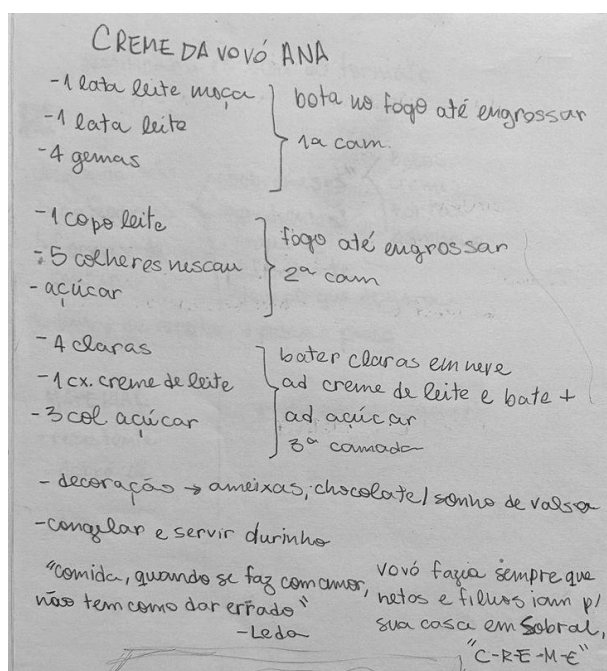 CREME DA VOVÓ ANA
-1 lata leite moça
-1 lata leite
-4 gemas
bota no fogo até engrossar
1a cam.
-1 copo leite
-5 colheres nescau
-açúcar
fogo até engrossar
2ª cam
-4 claras
-1 cx. creme de leite
-3 col açúcar
bater claras em neve
ad creme de leite e bate +
ad açúcar
3ª camada
- decoração → ameixas, chocolate/sonho de valsa
-congelar e servir durinho
"comida, quando se faz com amor,
não tem como dar errado"
-Leda
vovó fazia sempre que
netos e filhos iam p/
sua casa em Sobral,
"C-R-E-M-E"